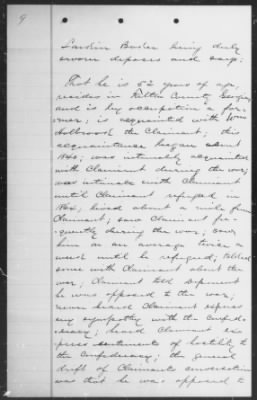 9
being duly
sworn deposes and says:
That he is 52 years of age,
resides in Fulton County Georgia
and is by occupation a far-
mer; is acquainted with Wm
Holbrook the Claimant; this
acquaintance began about
1840; was intimately acquainted
with Claimant during the war;
was intimate with Claimant
until Claimant refugeed in
1864; lived about a mile from
Claimant; saw Claimant fre-
quently during the war; saw
him on an average twice a
week until he refugeed; talked
some with Claimant about the
war; Claimant told deponent
he was opposed to the war;
never heard Claimant express
any sympathy with the Confed-
eracy; heard Claimant ex-
press sentiments of hostility to
the Confederacy; the general
drift of Claimants conversation
was that he was opposed to